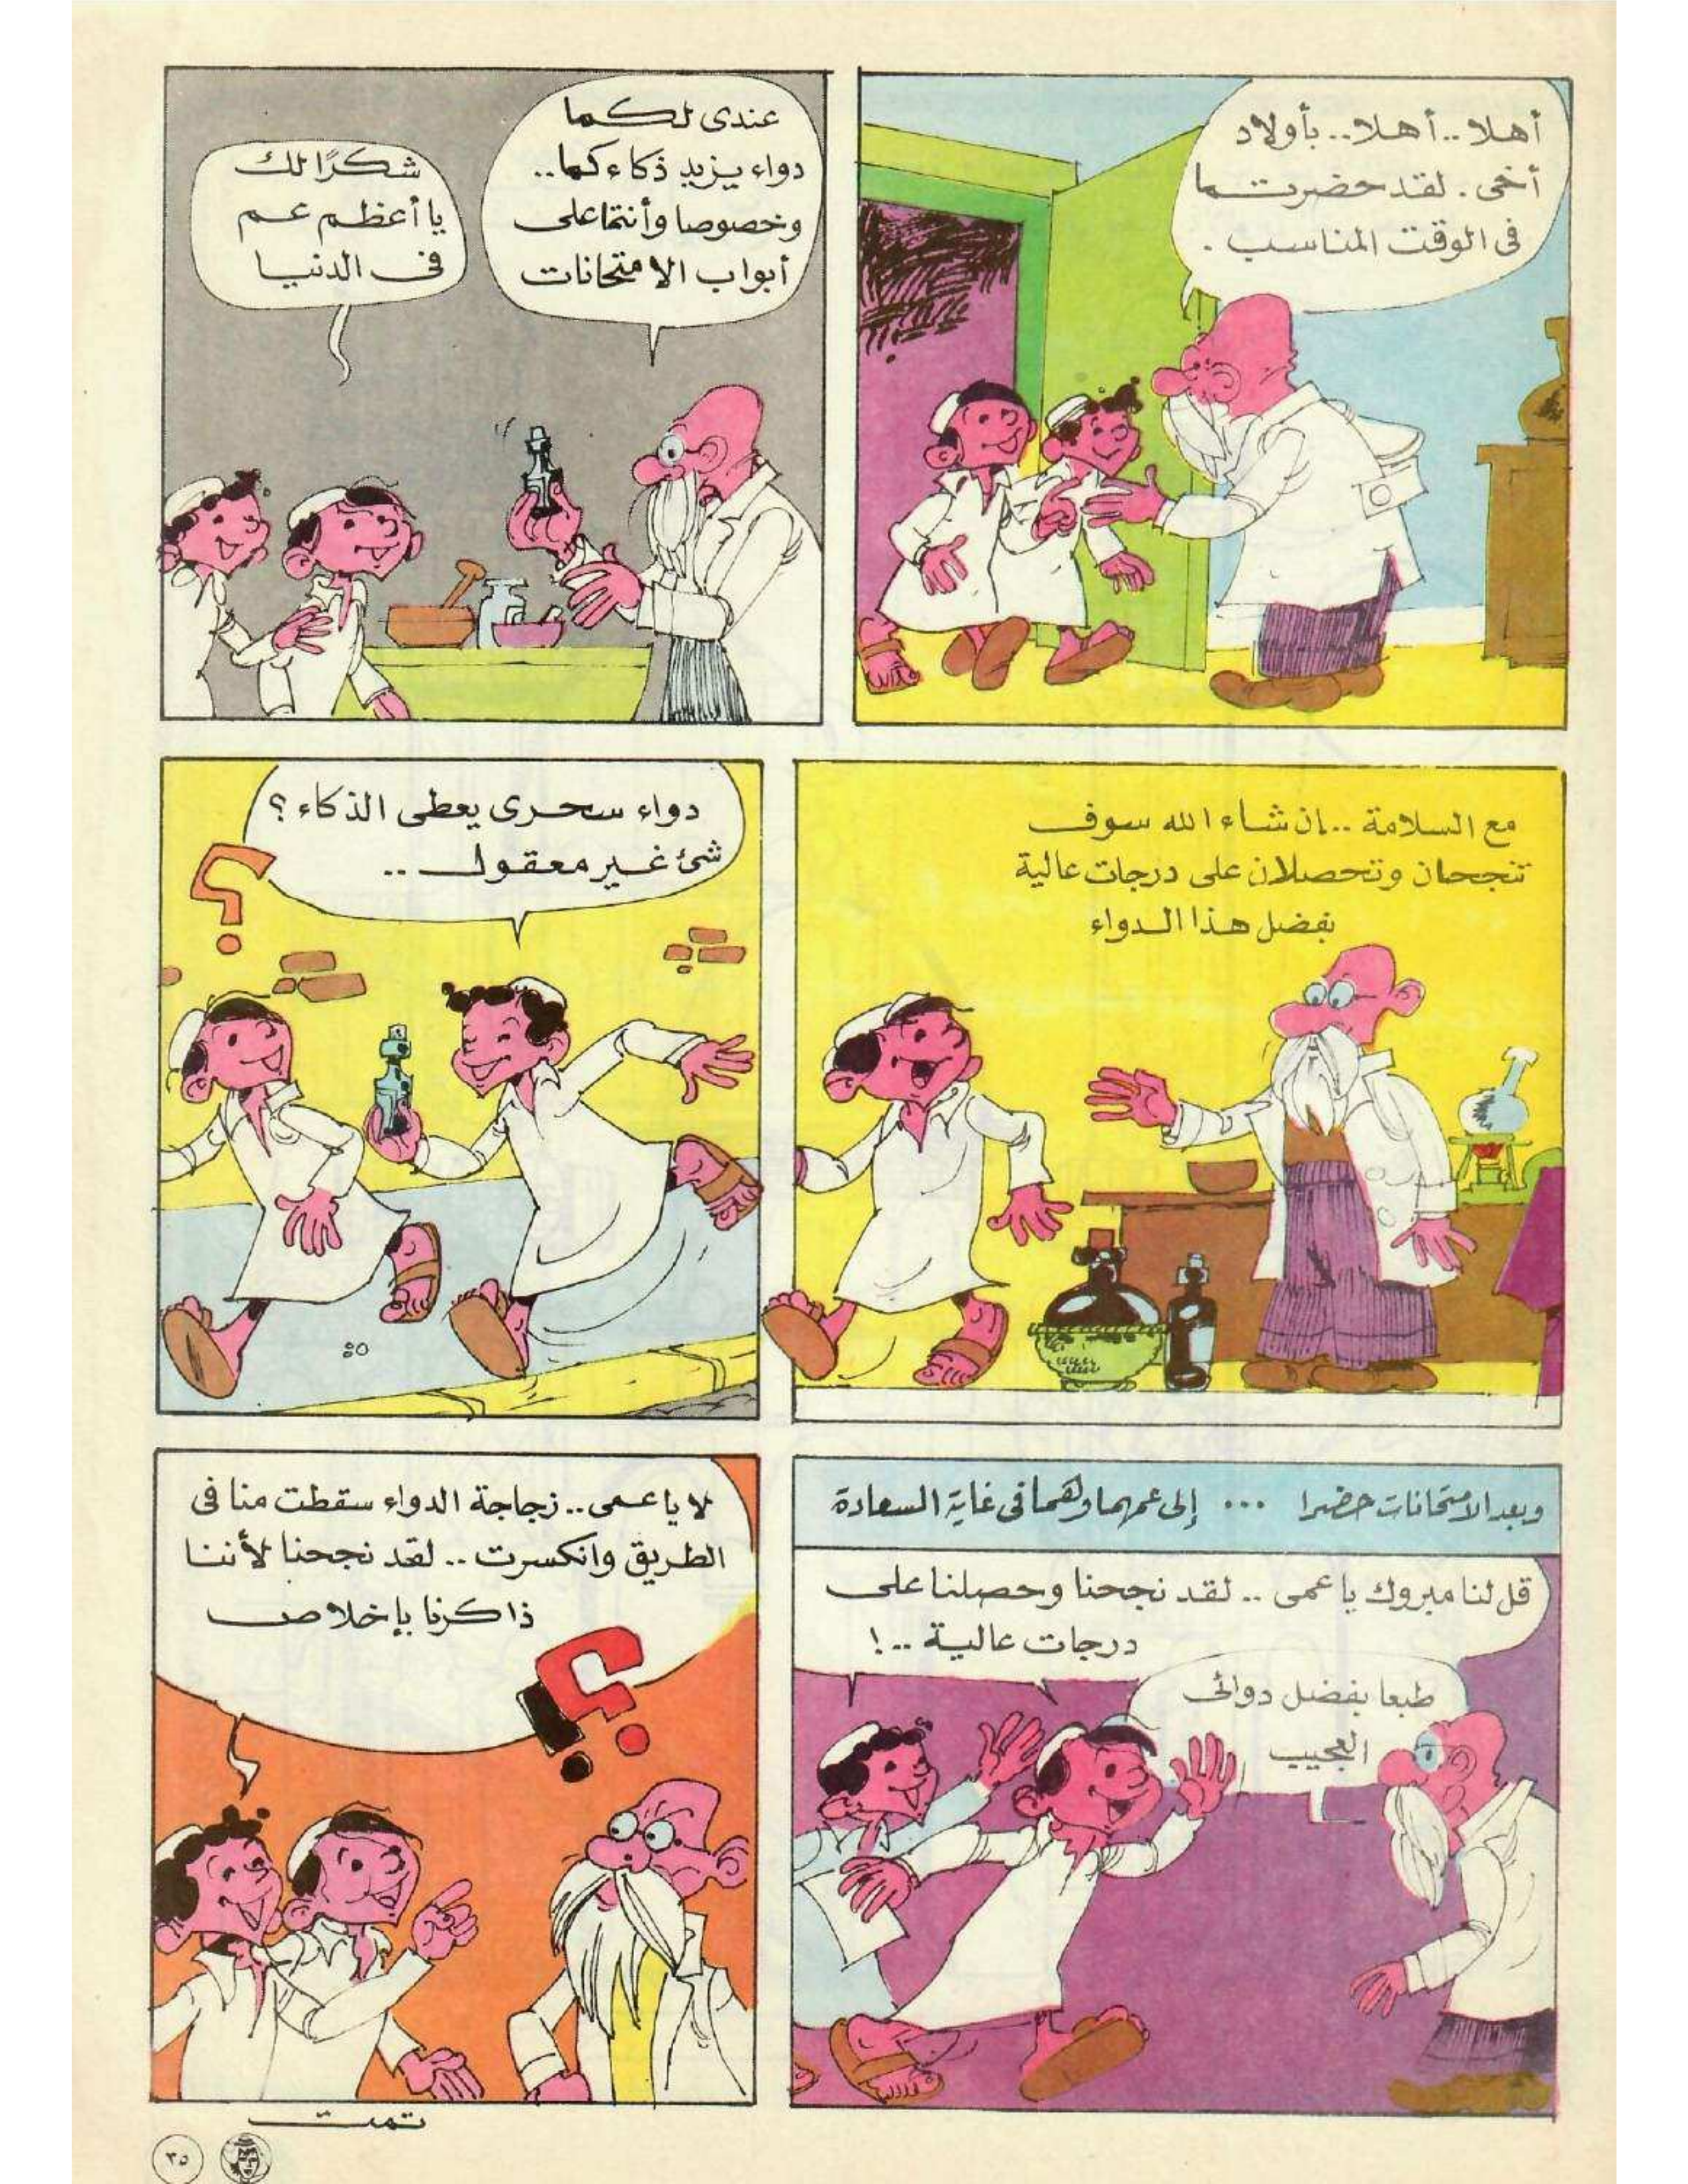 أهلا.. أهلا.. بأولاد
أخى. لقد حضرتما
فى الوقت المناسب.
عندى لكما
دواء يزيد ذكاءكما..
وخصوصا وأنتما على
أبواب الامتحانات
شكرًا لك
يا أعظم عم
فى الدنيا
مع السلامة.. إن شاء الله سوف
تنجحان وتحصلان على درجات عالية
بفضل هذا الدواء
دواء سحرى يعطى الذكاء؟
شئ غير معقول..
وبعد الامتحانات حضرا ... إلى عمهما وهما فى غاية السعادة
قل لنا مبروك يا عمى.. لقد نجحنا وحصلنا على
درجات عالية..!
طبعا بفضل دوائى
العجيب
لا يا عمى.. زجاجة الدواء سقطت منا فى
الطريق وانكسرت.. لقد نجحنا لأننا
ذاكرنا بإخلاص
؟!
تمت
٣٥